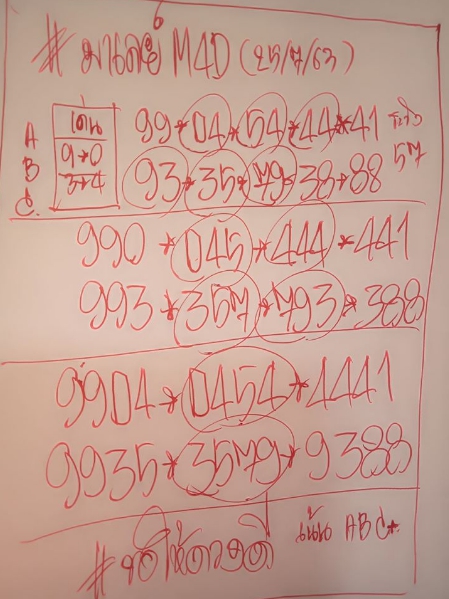 # มาเลย์ M4D (25/7/63)
A
B
C.
เด่น
9→0
3→4
99*04*54*44*41
ระวัง
57
93*35*79*38*88
990 *045*444*441
993*357*793*388
9904*0454*4441
9935*3579*9388
#ขอให้ดวงดี
เน้น ABC*